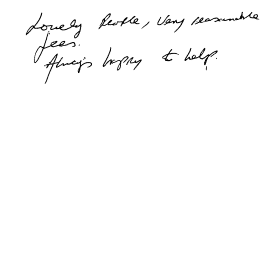 Lovely People, very reasonable
fees.
Always happy to help.